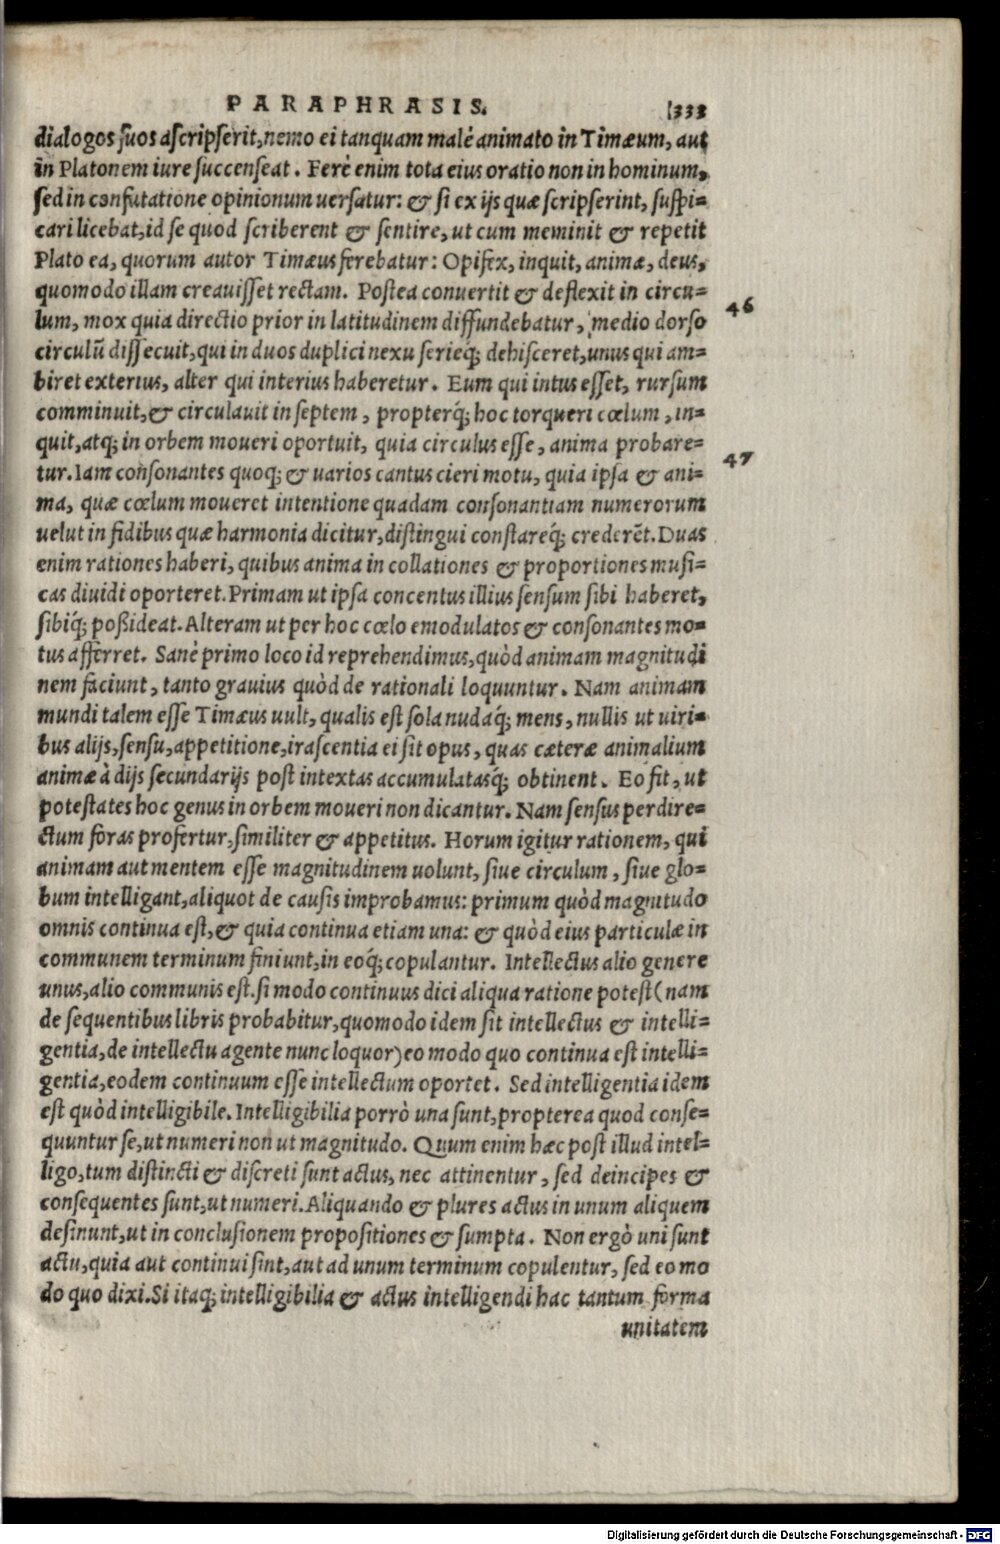 PARAPHRASIS. 333
dialogos suos ascripserit, nemo ei tanquam malè animato in Timæum, aut
in Platonem iure succenseat. Ferè enim tota eius oratio non in hominum,
sed in confutatione opinionum uersatur: & si ex ijs quæ scripserint, suspi=
cari licebat, id se quod scriberent & sentire, ut cum meminit & repetit
Plato ea, quorum autor Timæus ferebatur: Opifex, inquit, animæ, deus,
quomodo illam creauisset rectam. Postea conuertit & deflexit in circu= 46
lum, mox quia directio prior in latitudinem diffundebatur, medio dorso
circulū dissecuit, qui in duos duplici nexu serieq́; dehisceret, unus qui am=
biret exterius, alter qui interius haberetur. Eum qui intus esset, rursum
comminuit, & circulauit in septem, propterq́; hoc torqueri cœlum, in=
quit, atq; in orbem moueri oportuit, quia circulus esse, anima probare=
tur. Iam consonantes quoq; & uarios cantus cieri motu, quia ipsa & ani= 47
ma, quæ cœlum moueret intentione quadam consonantiam numerorum
uelut in fidibus quæ harmonia dicitur, distingui constareq́; crederēt. Duas
enim rationes haberi, quibus anima in collationes & proportiones musi=
cas diuidi oporteret. Primam ut ipsa concentus illius sensum sibi haberet,
sibiq́; poßideat. Alteram ut per hoc cœlo emodulatos & consonantes mo=
tus afferret. Sanè primo loco id reprehendimus, quòd animam magnitudi
nem faciunt, tanto grauius quòd de rationali loquuntur. Nam animam
mundi talem esse Timæus uult, qualis est sola nudaq́; mens, nullis ut uiri=
bus alijs, sensu, appetitione, irascentia ei sit opus, quas cæteræ animalium
animæ à dijs secundarijs post intextas accumulatasq́; obtinent. Eo fit, ut
potestates hoc genus in orbem moueri non dicantur. Nam sensus per dire=
ctum foras profertur, similiter & appetitus. Horum igitur rationem, qui
animam aut mentem esse magnitudinem uolunt, siue circulum, siue glo=
bum intelligant, aliquot de causis improbamus: primum quòd magnitudo
omnis continua est, & quia continua etiam una: & quòd eius particulæ in
communem terminum finiunt, in eoq́; copulantur. Intellectus alio genere
unus, alio communis est. si modo continuus dici aliqua ratione potest (nam
de sequentibus libris probabitur, quomodo idem sit intellectus & intelli=
gentia, de intellectu agente nunc loquor) eo modo quo continua est intelli=
gentia, eodem continuum esse intellectum oportet. Sed intelligentia idem
est quòd intelligibile. Intelligibilia porrò una sunt, propterea quod conse=
quuntur se, ut numeri non ut magnitudo. Quum enim hæc post illud intel=
ligo, tum distincti & discreti sunt actus, nec attinentur, sed deincipes &
consequentes sunt, ut numeri. Aliquando & plures actus in unum aliquem
desinunt, ut in conclusionem propositiones & sumpta. Non ergò uni sunt
actu, quia aut continui sint, aut ad unum terminum copulentur, sed eo mo
do quo dixi. Si itaq; intelligibilia & actus intelligendi hac tantum forma
unitatem
Digitalisierung gefördert durch die Deutsche Forschungsgemeinschaft - DFG